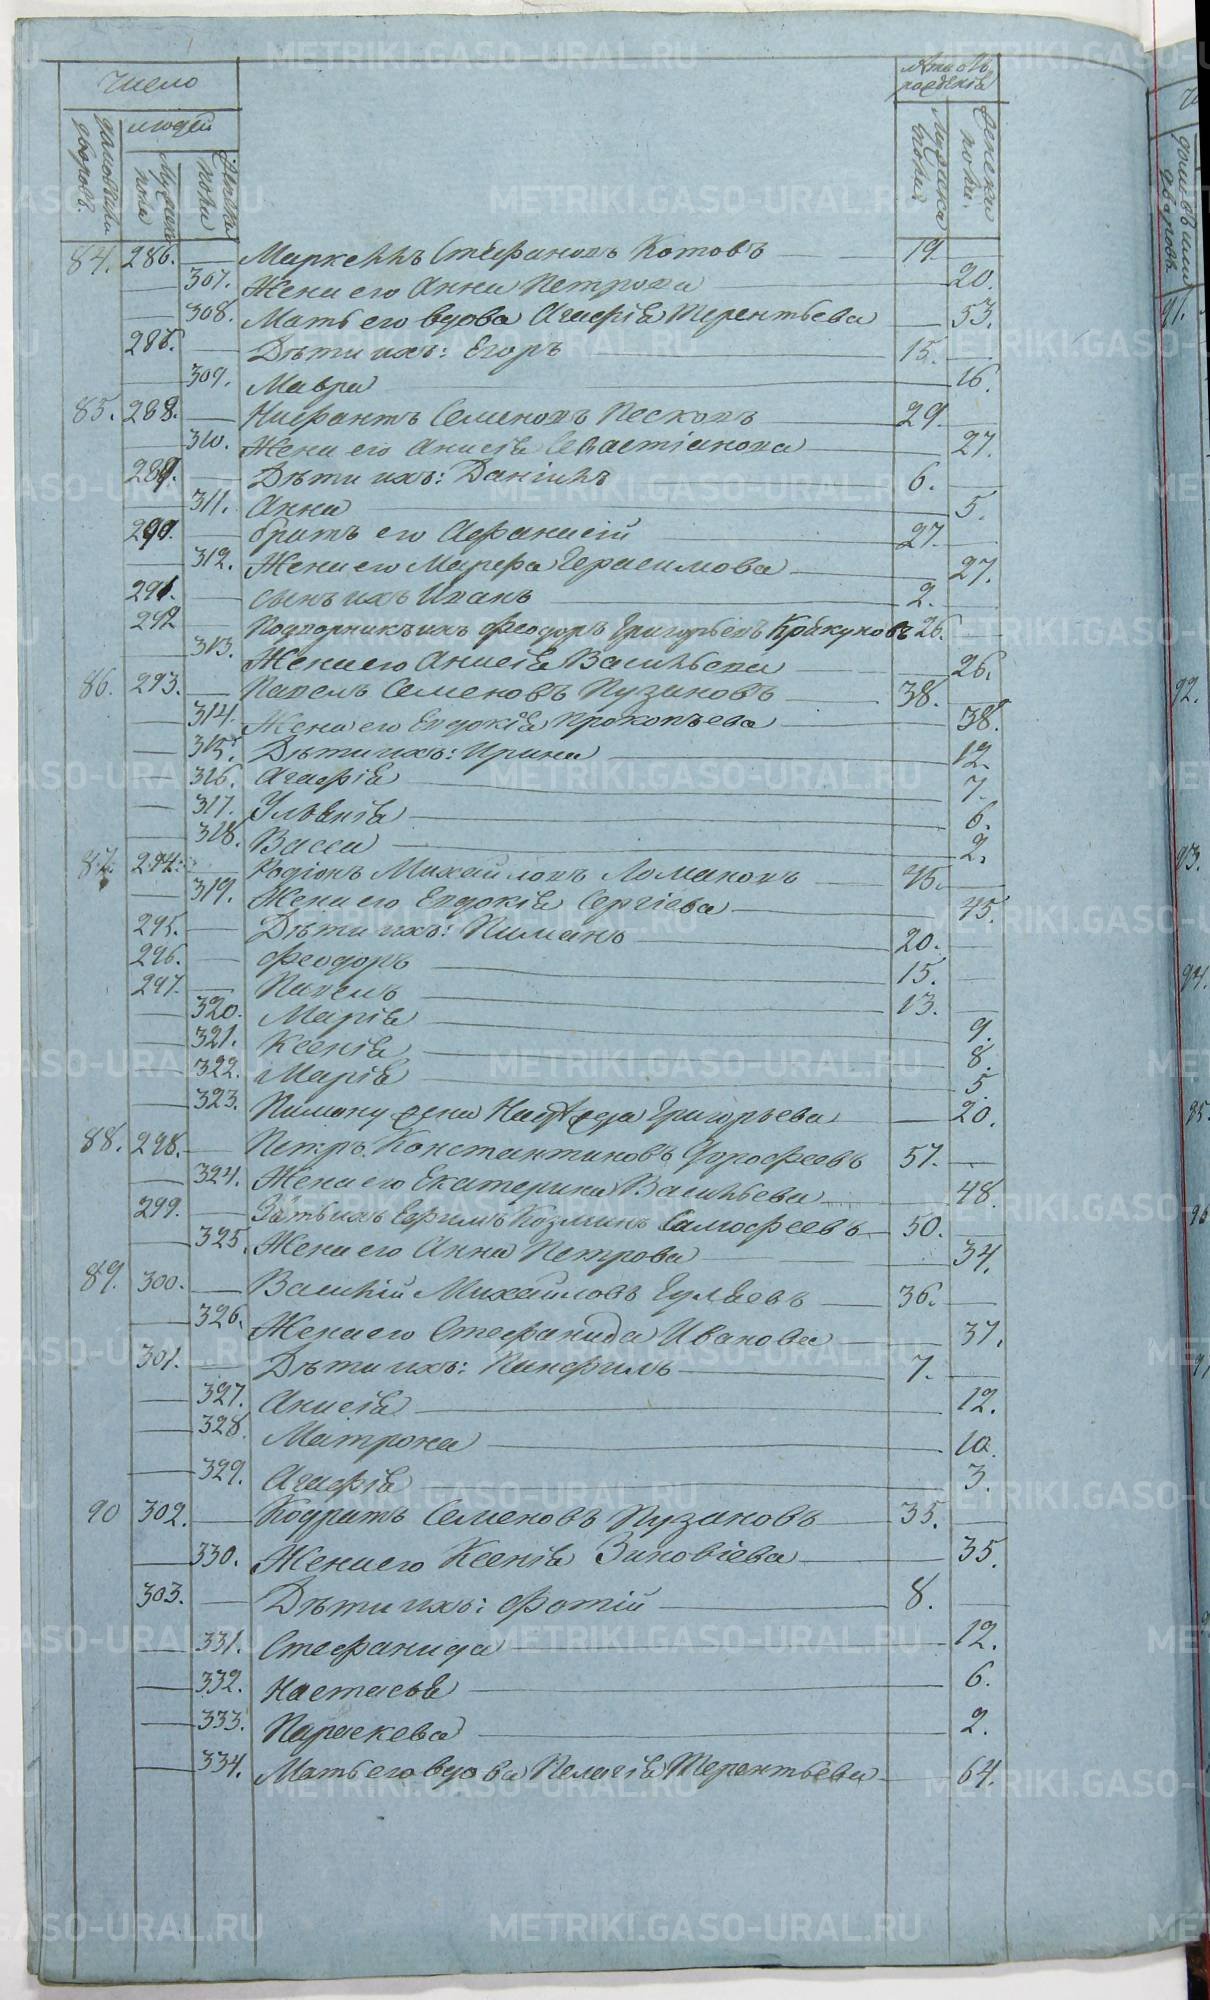 Число
Лѣта отъ рожденія
домовъ или дворовъ.
людей
Мужеска пола
Женска пола
Мужеска пола.
Женска пола.
84. 286. — Маркеллъ Стефановъ Котовъ — 19 —
— 307. Жена его Анна Петрова — 20.
— 308. Мать его вдова Агафія Терентьева — 53.
286. — Дѣти ихъ: Егоръ — 15. —
— 309. Мавра — 16.
85. 288. — Нифантъ Семеновъ Песковъ — 29. —
— 310. Жена его Анисія Севастіанова — 27.
289. — Дѣти ихъ: Даніилъ — 6. —
— 311. Анна — 5.
290. — братъ его Афанасій — 27. —
— 312. Жена его Марѳа Герасимова — 27.
291. — сынъ ихъ Иванъ — 2. —
292 — Подворникъ ихъ Феодоръ Григорьевъ Крякуновъ 26. —
— 313. Жена его Анисія Васильева — 26.
86. 293. — Павелъ Семеновъ Пузановъ — 38. —
— 314. Жена его Евдокія Прокопьева — 38.
— 315. Дѣти ихъ: Ирина — 12.
— 316. Агафія — 7.
— 317. Ульянія — 6.
— 318. Васса — 2.
87. 294. Родіонъ Михайловъ Ломановъ — 45. —
— 319. Жена его Евдокія Сергіева — 45.
295. — Дѣти ихъ: Пиманъ — 20. —
296. — Феодоръ — 15. —
297. — Павелъ — 13. —
— 320. Марія — 9.
— 321. Ксенія — 8.
— 322. Марія — 5.
— 323. Пиману жена Надежда Григорьева — 20.
88. 298. — Петръ Константиновъ Дорофеевъ 57. —
— 324. Жена его Екатерина Васильева — 48.
299. — Зять ихъ Ефимъ Козминъ Самофеевъ — 50. —
— 325. Жена его Анна Петрова — 34.
89. 300. — Василій Михайловъ Гуляевъ — 36. —
— 326. Жена его Стефанида Иванова — 37.
301. — Дѣти ихъ: Панфилъ — 7. —
— 327. Анисія — 12.
— 328. Матрона — 10.
— 329. Агафія — 3.
90 302. — Кодратъ Семеновъ Пузановъ — 35. —
— 330. Жена его Ксенія Зиновіева — 35.
303. — Дѣти ихъ: Фотій — 8. —
— 331. Стефанида — 12.
— 332. Настасья — 6.
— 333. Параскева — 2.
— 334. Мать его вдова Пелагія Терентьева — 64.
METRIKI.GASO-URAL.RU